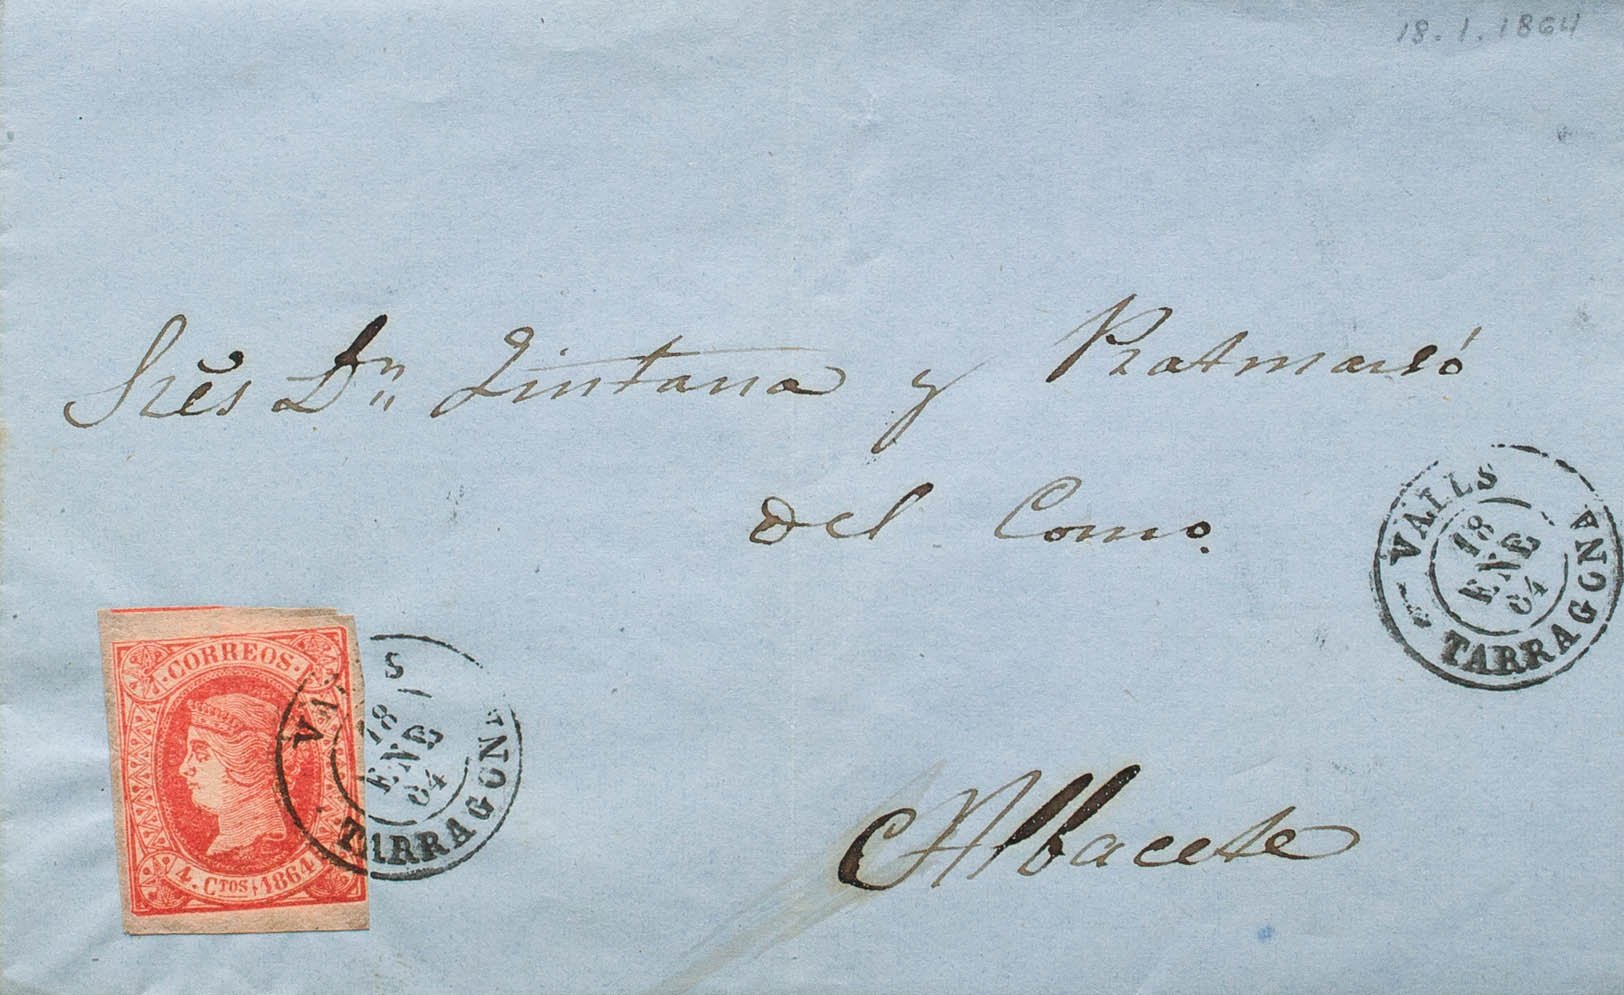 18.1.1864
Sres Dn Quintana y Ratmaró
del Como.
VALLS
18
ENE
64
TARRAGONA
CORREOS
VALLS
18
ENE
64
TARRAGONA
4. Ctos 1864
Albacete